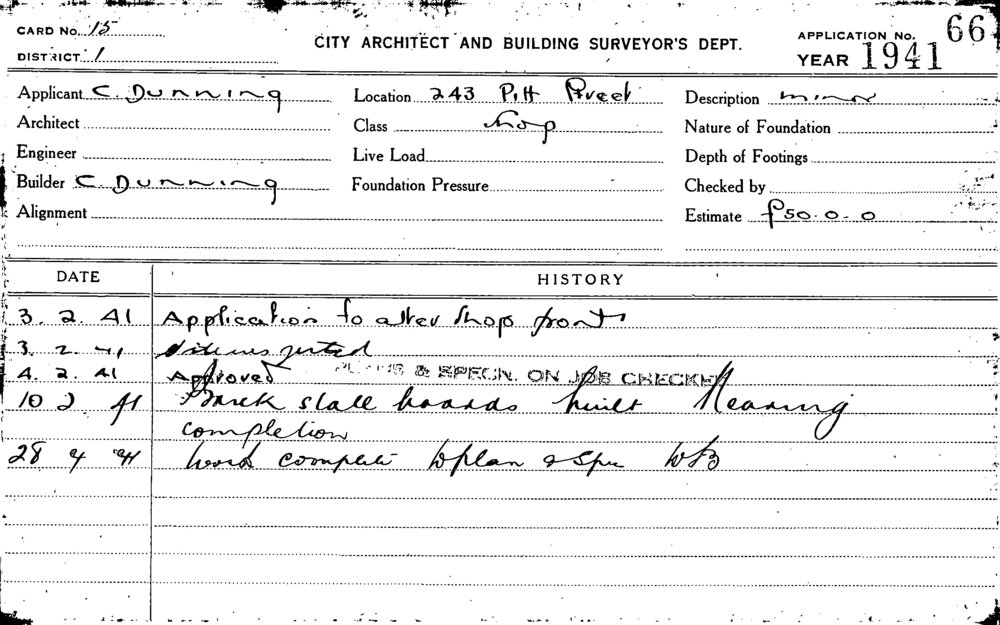 CARD No. 15
DISTRICT 1
CITY ARCHITECT AND BUILDING SURVEYOR'S DEPT.
APPLICATION No. 66
YEAR 1941
Applicant C. Dunning
Location 243 Pitt Street
Description minor
Architect
Class Shop
Nature of Foundation
Engineer
Live Load
Depth of Footings
Builder C Dunning
Foundation Pressure
Checked by
Alignment
Estimate £50.0.0
DATE HISTORY
3. 2. 41 Application to alter shop front
3. 2. 41 Site inspected
4. 2. 41 Approved PLANS & SPECN. ON JOB CHECKED
10 2 41 Brick stall boards built Nearing
completion
28 4 41 Work complete to plan & Spec WB